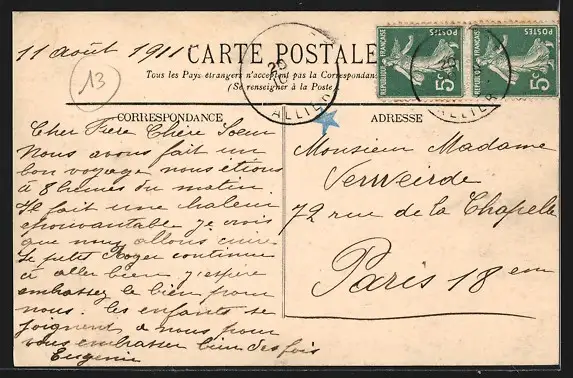 11 août 1911
13
CARTE POSTALE
Tous les Pays étrangers n'acceptent pas la Correspondan
(Se renseigner à la Poste
REPUBLIQUE FRANÇAISE
POSTES
5c
REPUBLIQUE FRANÇAISE
POSTES
5c
20
ALLIER
ALLIER
CORRESPONDANCE
Cher Frere Chère Soeur
Nous avons fait un
bon voyage nous étions
à 8 heures du matin.
Il fait une chaleur
epouvantable je crois
que nous allons cuire
Le petit Roger continue
à aller bien j'espère
embrassez le bien pour
nous. les enfants se
joignent a nous pour
vous embrasser bien des fois
Eugenie
ADRESSE
Monsieur Madame
Verweirde
72 rue de la Chapelle
Paris 18 em